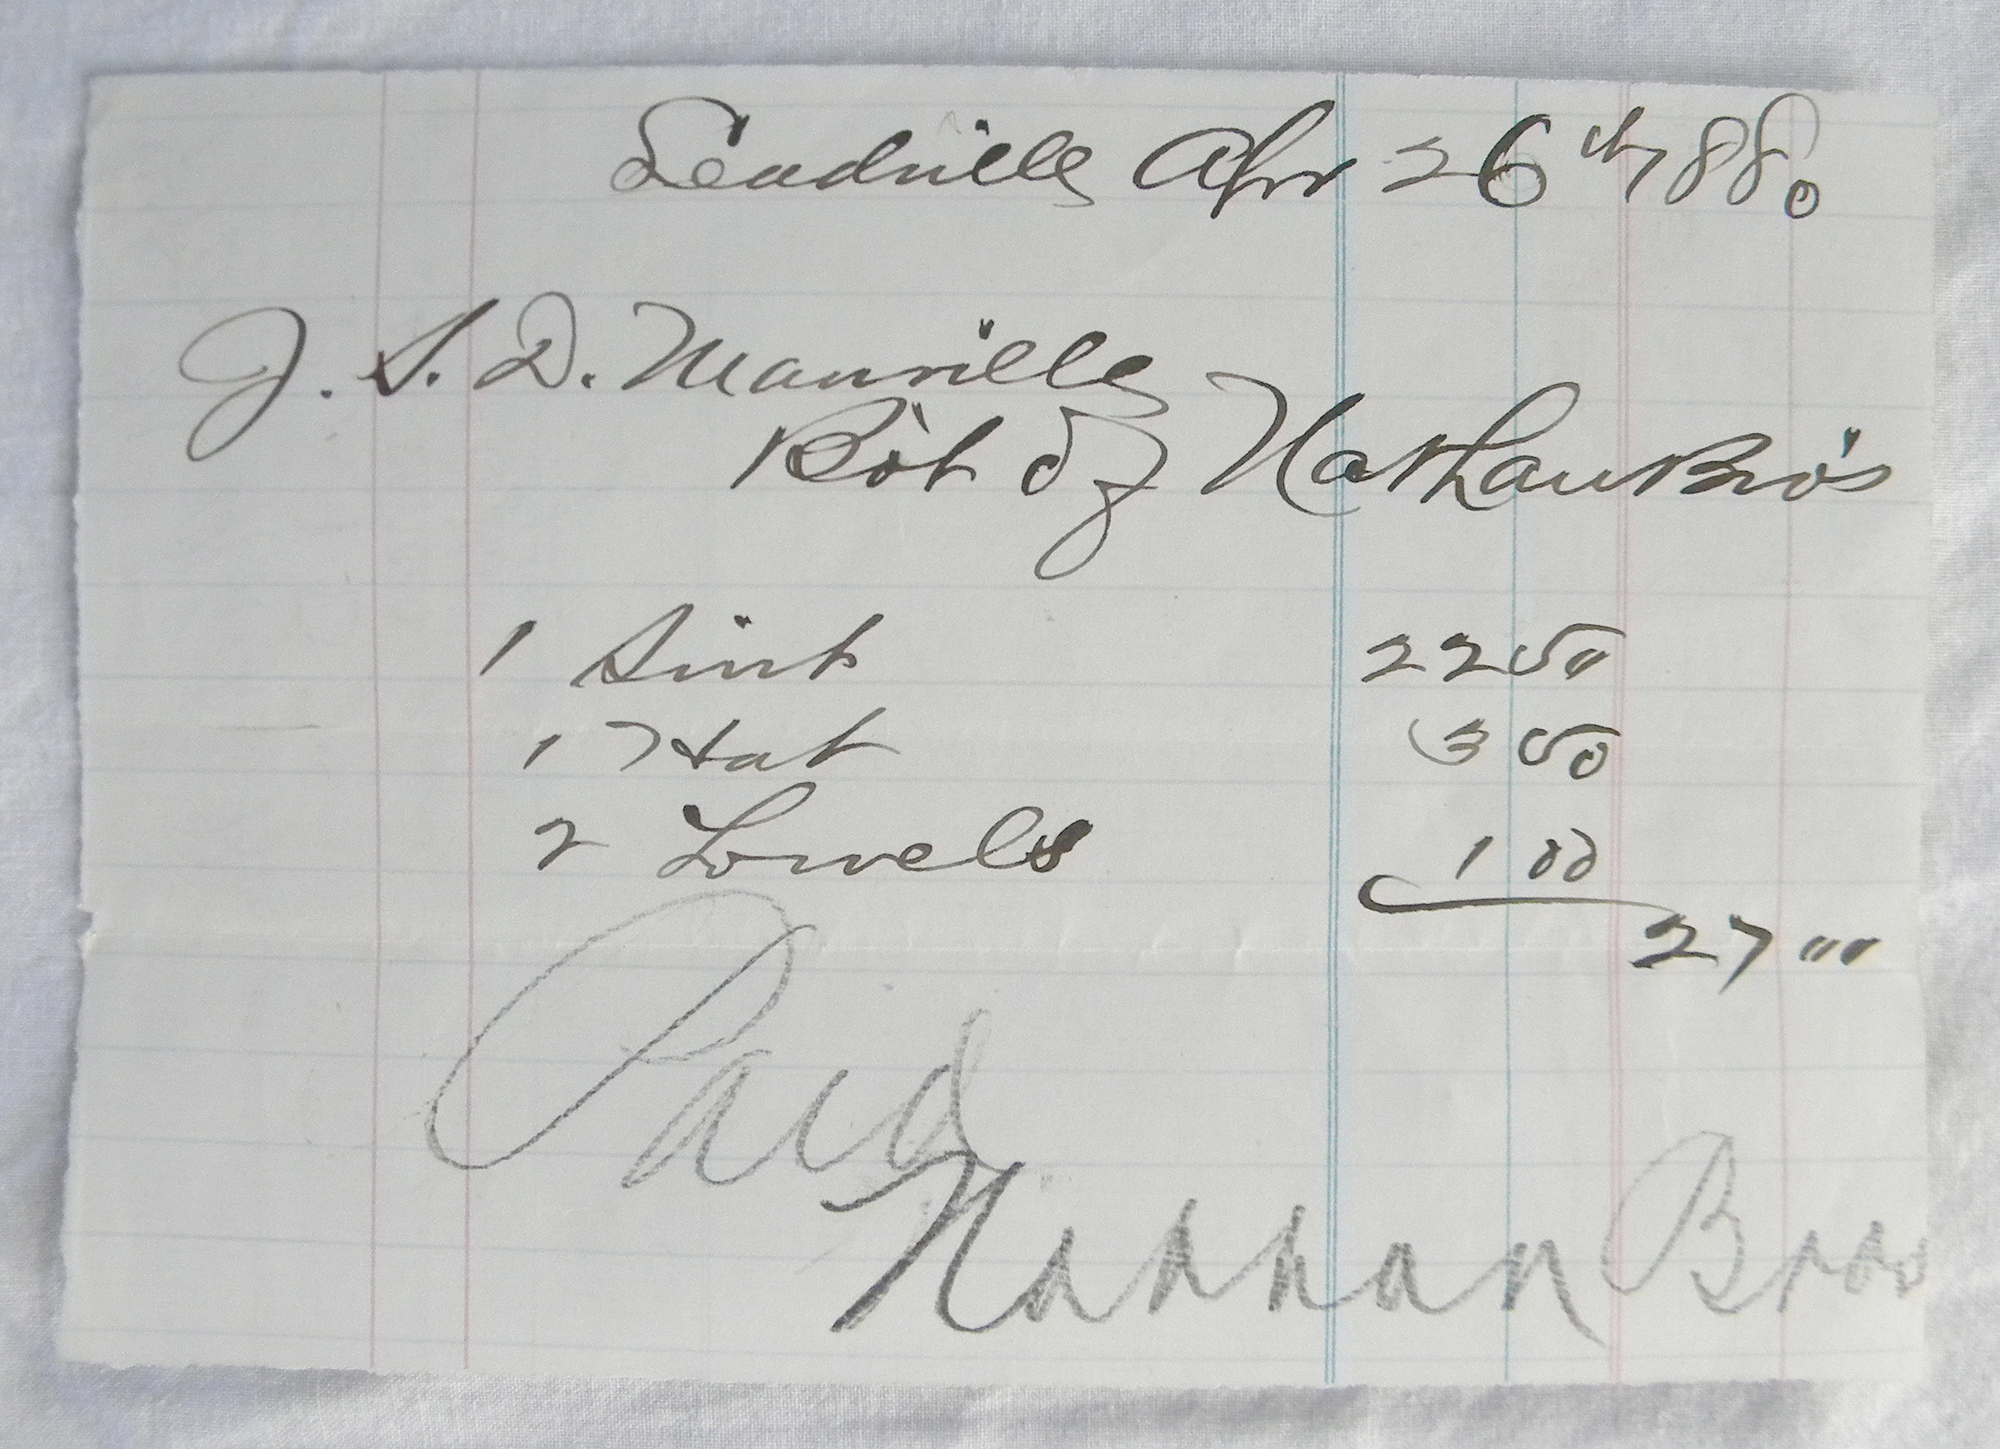 Leadville Apr 26th 1880
J. S. D. Manville
Bot of Nathan Bro's
1 Suit 22 50
1 Hat 3 50
2 Towels 1 00
27 00
Paid
Nathan Bros